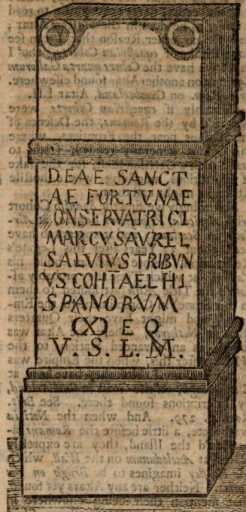 DEAE SANCT
AE FORTVNAE
ONSERVATRICI
MARCUSAVREL
SALVIVSTRIBVN
VSCOHIAELHI
SPANORVM
CXD EQ
V. S. L. M.